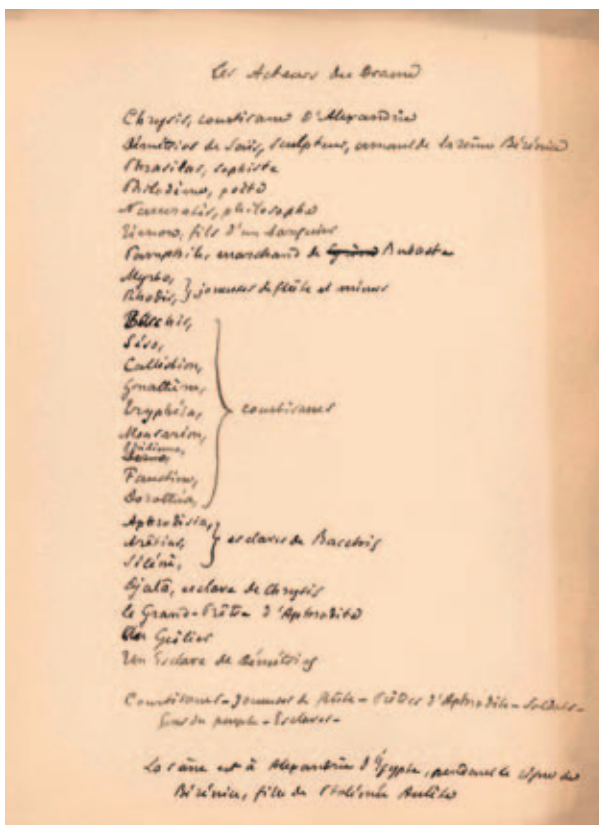 Les Acteurs du Drame
Chrysis, courtisane d'Alexandrie
Démétrios de Saïs, sculpteur, amant de la reine Bérénice
Phrasilas, sophiste
Philodème, poète
Naucratès, philosophe
Timon, fils d'un banquier
Pamphile, marchand de Bubaste
Myrto,
Rhodis, } joueuses de flûte et mimes
Bacchis,
Séso,
Callistion,
Gnathène,
Tryphèra,
Mousarion,
Faustine,
Dorothéa,
} courtisanes
Aphrodisia,
Arétias,
Silène,
} esclaves de Bacchis
Djala, esclave de Chrysis
Le Grand-Prêtre d'Aphrodite
Un Geôlier
Un Esclave de Démétrios
Courtisanes - Joueuses de flûte - Prêtres d'Aphrodite - Soldats -
Gens du peuple - Esclaves -
La scène est à Alexandrie d'Égypte, pendant le règne de
Bérénice, fille de Ptolémée Aulète